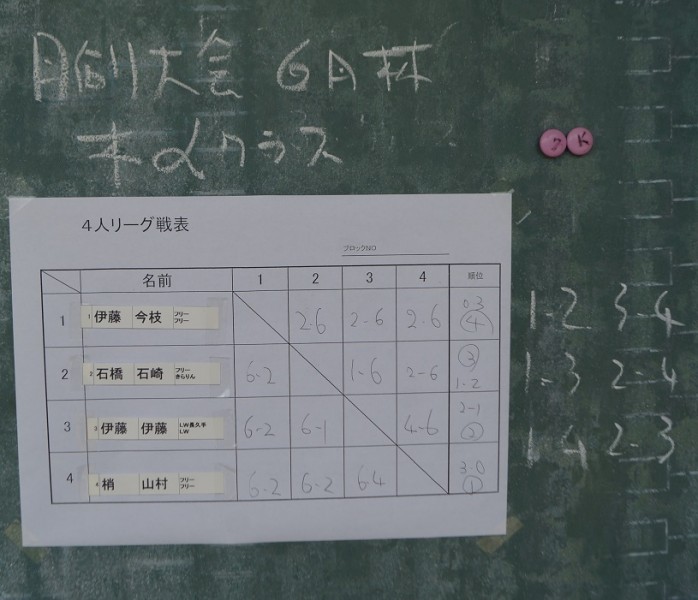 月例大会 6月杯
オメクラス
ク K
4人リーグ戦表
ブロックNO
名前 1 2 3 4 順位
1 1 伊藤 今枝 フリー フリー 2-6 2-6 2-6 0-3 ④
2 2 石橋 石崎 フリー きらりん 6-2 1-6 2-6 ③ 1-2
3 3 伊藤 伊藤 LW長久手 LW 6-2 6-1 4-6 2-1 ②
4 4 梢 山村 フリー フリー 6-2 6-2 6-4 3-0 ①
1-2 3-4
1-3 2-4
1-4 2-3